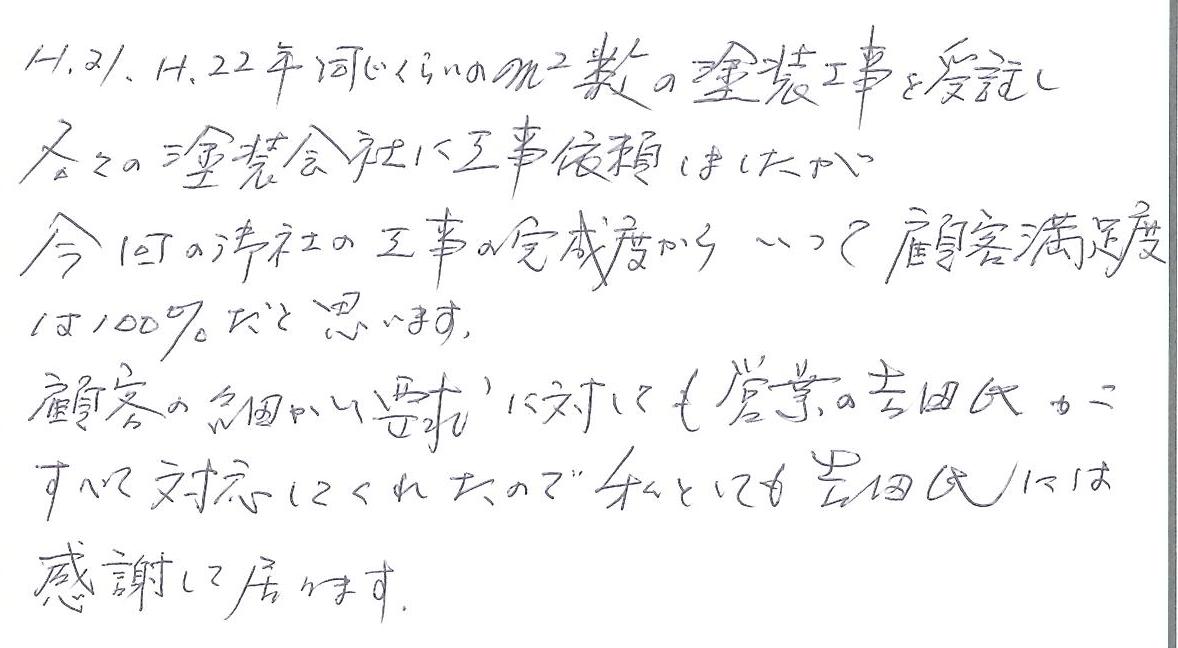 H.21、H.22年同じくらいのm²数の塗装工事を受註し
各々の塗装会社に工事依頼しましたが
今回の御社の工事の完成度からいって顧客満足度
は100%だと思います。
顧客の細かい要求に対しても営業の吉田氏が
すべて対応してくれたので私としても吉田氏には
感謝して居ります.